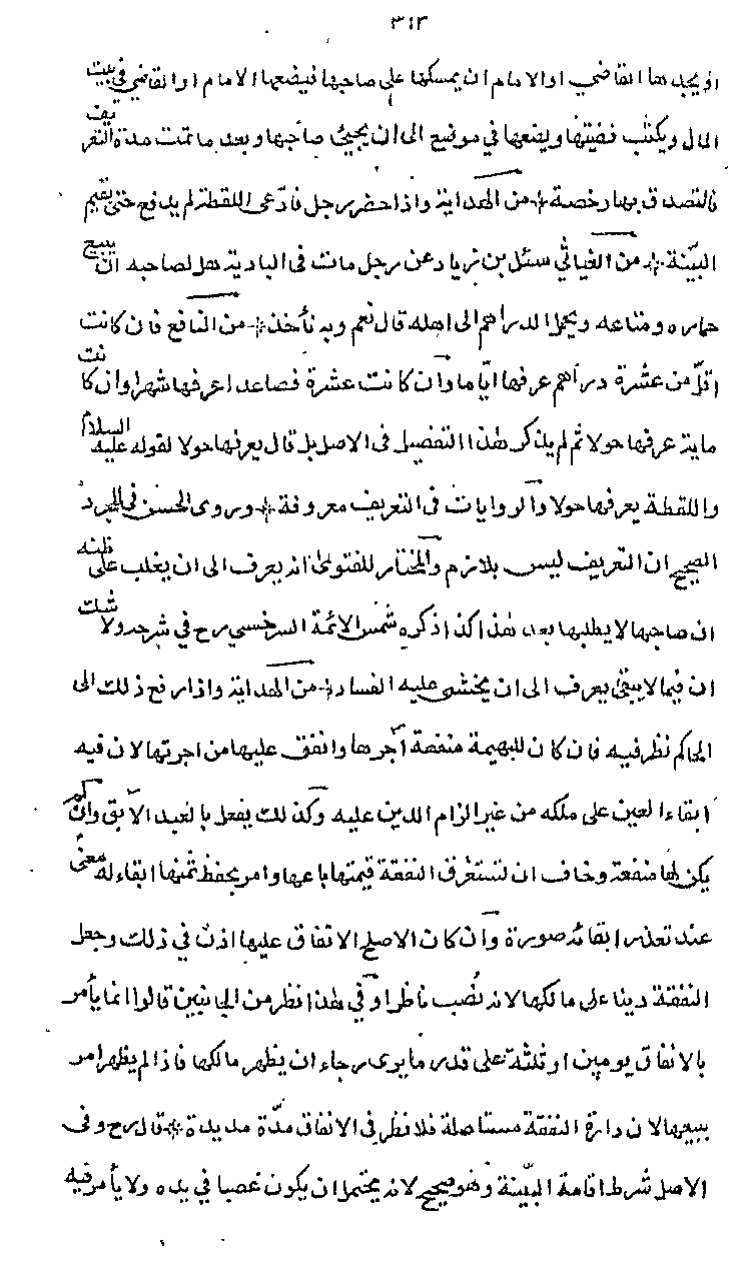 ٣١٣
او يجد ها القاضي او الامام ان يمسكها على صاحبها فيضعها الامام او القاضي في بيت
المال ويكتب قضيتها ويضعها في موضع الى ان يجيئ صاحبها وبعد ما تمت مدة التعريف
فالتصدق بها رخصة * من الهداية واذا حضر رجل فادعى اللقطة لم يدفع حتى يقيم
البيّنة * من الغياثي سئل بن زياد عن رجل مات فى البادية هل لصاحبه ان يبيع
حماره ومتاعه ويحمل الدراهم الى اهله قال نعم وبه نأخذ * من النافع فان كانت
اقلّ من عشرة دراهم عرفها ايّاما وان كانت عشرة فصاعدا عرفها شهرا وان كانت
ماية عرفها حولا ثم لم يذكر هذا التفصيل فى الاصل بل قال يعرفها حولا لقوله عليه السلام
واللقطة يعرفها حولا والروايات فى التعريف معروفة * وروى الحسن فى المجرد
الصحيح ان التعريف ليس بلازم والمختار للفتوى انه يعرف الى ان يغلب على ظنه
ان صاحبها لا يطلبها بعد هذا كذا ذكره شمس الائمة السرخسي رح في شرحه ولا شك
ان فيما لا يبقى يعرف الى ان يخشى عليه الفساد * من الهداية واذا رفع ذلك الى
الحاكم نظر فيه فان كان للبهيمة منفعة آجرها وانفق عليها من اجرتها لان فيه
ابقاء العين على ملكه من غير الزام الدين عليه وكذلك يفعل بالعبد الآبق وان لم
يكن لها منفعة وخاف ان تستغرق النفقة قيمتها باعها وامر بحفظ ثمنها ابقاء له معنًى
عند تعذر ابقائه صورة وان كان الاصلح الانفاق عليها اذن في ذلك وجعل
النفقة دينا على مالكها لانه نُصب ناظرا وفي هذا نظر من الجانبين قالوا انما يأمر
بالانفاق يومين او ثلثة على قدر ما يرى رجاء ان يظهر مالكها فاذا لم يظهر امر
ببيعها لان دارة النفقة مستاصلة فلا نظر فى الانفاق مدّة مديدة * قال رح وفى
الاصل شرط اقامة البيّنة وهو صحيح لانه يحتمل ان يكون غصبا في يده ولا يأمر فيه